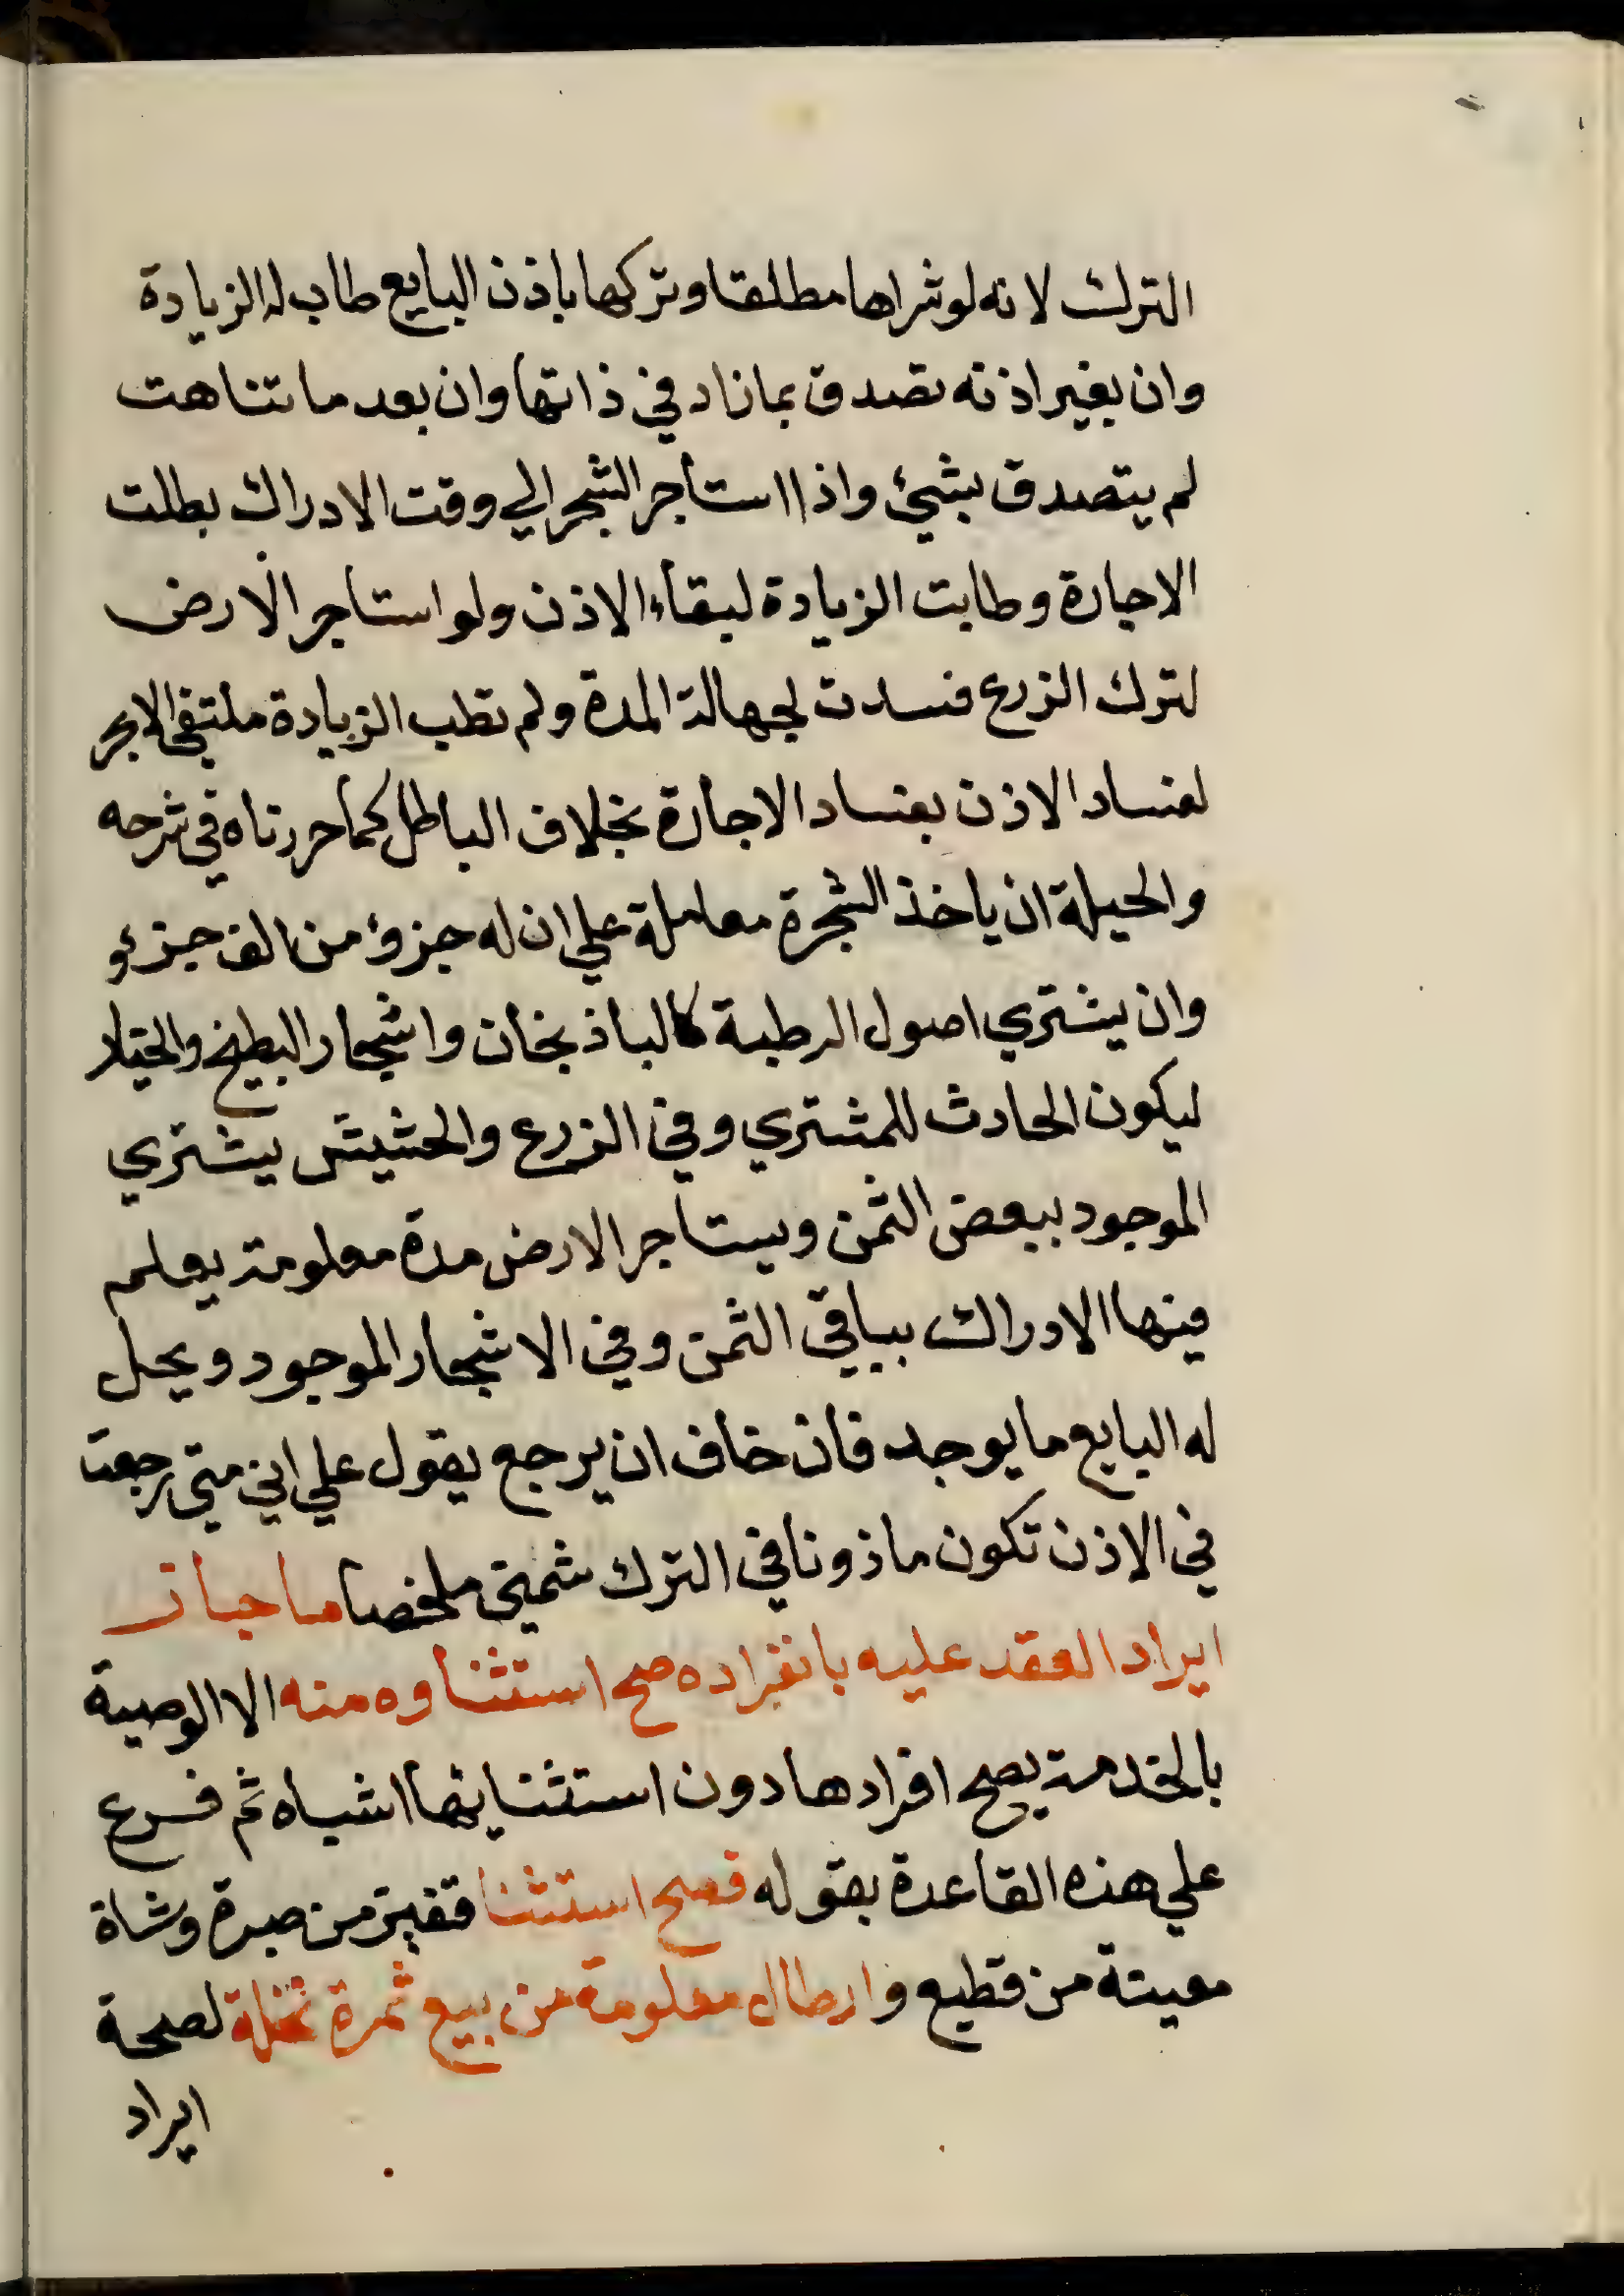 الترك لانه لو شراها مطلقا وتركها باذن البايع طاب له الزيادة
وان بغير اذنه تصدق بما زاد في ذاتها وان بعد ما تناهت
لم يتصدق بشئ واذا استأجر الشجر الي وقت الادراك بطلت
الاجارة وطابت الزيادة لبقاء الاذن ولو استاجر الارض
لترك الزرع فسدت لجهالة المدة ولم تطب الزيادة ملتقي الابحر
لفساد الاذن بفساد الاجارة بخلاف الباطل كما حررناه في شرحه
والحيلة ان ياخذ الشجرة معاملة علي ان له جزؤ من الف جزؤ
وان يشتري اصول الرطبة كالباذنجان واشجار البطيخ والخيار
ليكون الحادث للمشتري وفي الزرع والحشيش يشتري
الموجود ببعض الثمن ويستاجر الارض مدة معلومة يعلم
فيها الادراك بباقي الثمن وفي الاشجار الموجود ويحل
له البايع ما يوجد فان خاف ان يرجع يقول علي اني متي رجعت
في الاذن تكون ماذونا في الترك شمني ملخصا ما جاز
ايراد العقد عليه بانفراده صح استثناوه منه الا الوصية
بالخدمة يصح افرادها دون استثنايها اشباه ثم فرع
علي هذه القاعدة بقوله فصح استثنا قفيز من صبرة وشاة
معينة من قطيع وارطال معلومة من بيع ثمرة نخلة لصحة
ايراد